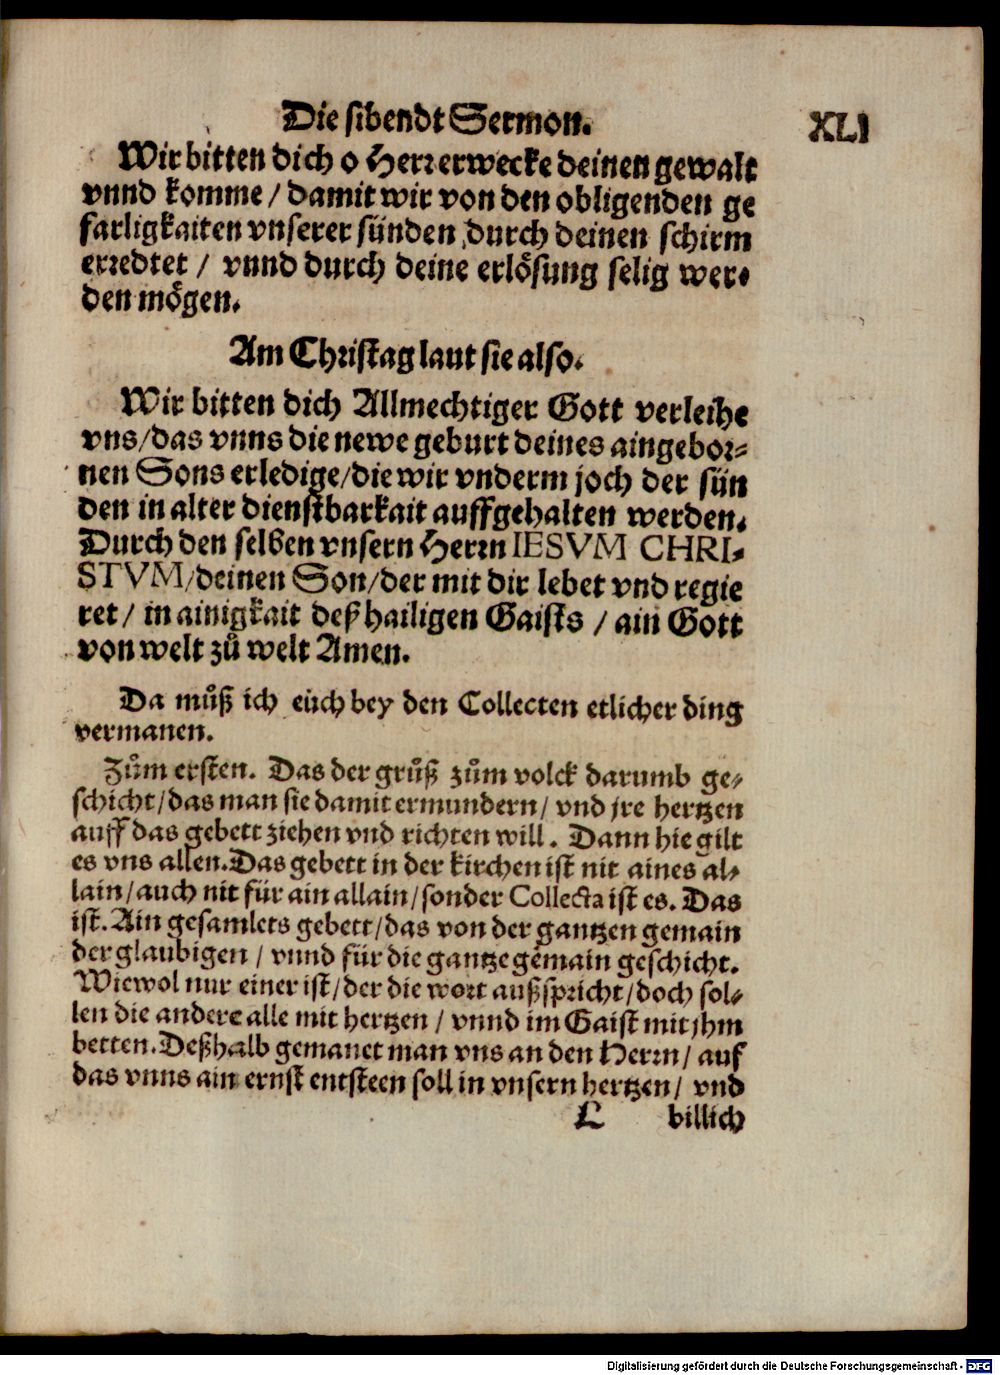 Die sibendt Sermon. XLI
Wir bitten dich o Herr erwecke deinen gewalt
vnnd komme / damit wir von den obligenden ge
farligkaiten vnserer sünden durch deinen schirm
erredtet / vnnd durch deine erlösung selig wer⸗
den mögen.
Am Christag laut sie also.
Wir bitten dich Allmechtiger Gott verleihe
vns/das vnns die newe geburt deines aingebor⸗
nen Sons erledige/die wir vnderm joch der sün
den in alter dienstbarkait auffgehalten werden.
Durch den selben vnsern Herrn IESVM CHRI⸗
STVM/deinen Son/der mit dir lebet vnd regie
ret / in ainigkait deß hailigen Gaists / ain Gott
von welt zů welt Amen.
Da můß ich eüch bey den Collecten etlicher ding
vermanen.
Zům ersten. Das der grůß zům volck darumb ge⸗
schicht/das man sie damit ermundern/ vnd jre hertzen
auff das gebett ziehen vnd richten will. Dann hie gilt
es vns allen. Das gebett in der kirchen ist nit aines al⸗
lain/auch nit für ain allain/sonder Collecta ist es. Das
ist. Ain gesamlets gebett/das von der gantzen gemain
der glaubigen / vnnd für die gantze gemain geschicht.
Wiewol nur einer ist/der die wort außspricht/doch sol⸗
len die andere alle mit hertzen / vnnd im Gaist mit jhm
betten. Deßhalb gemanet man vns an den Herrn/ auf
das vnns ain ernst entsteen soll in vnsern hertzen/ vnd
L billich
Digitalisierung gefördert durch die Deutsche Forschungsgemeinschaft - DFG